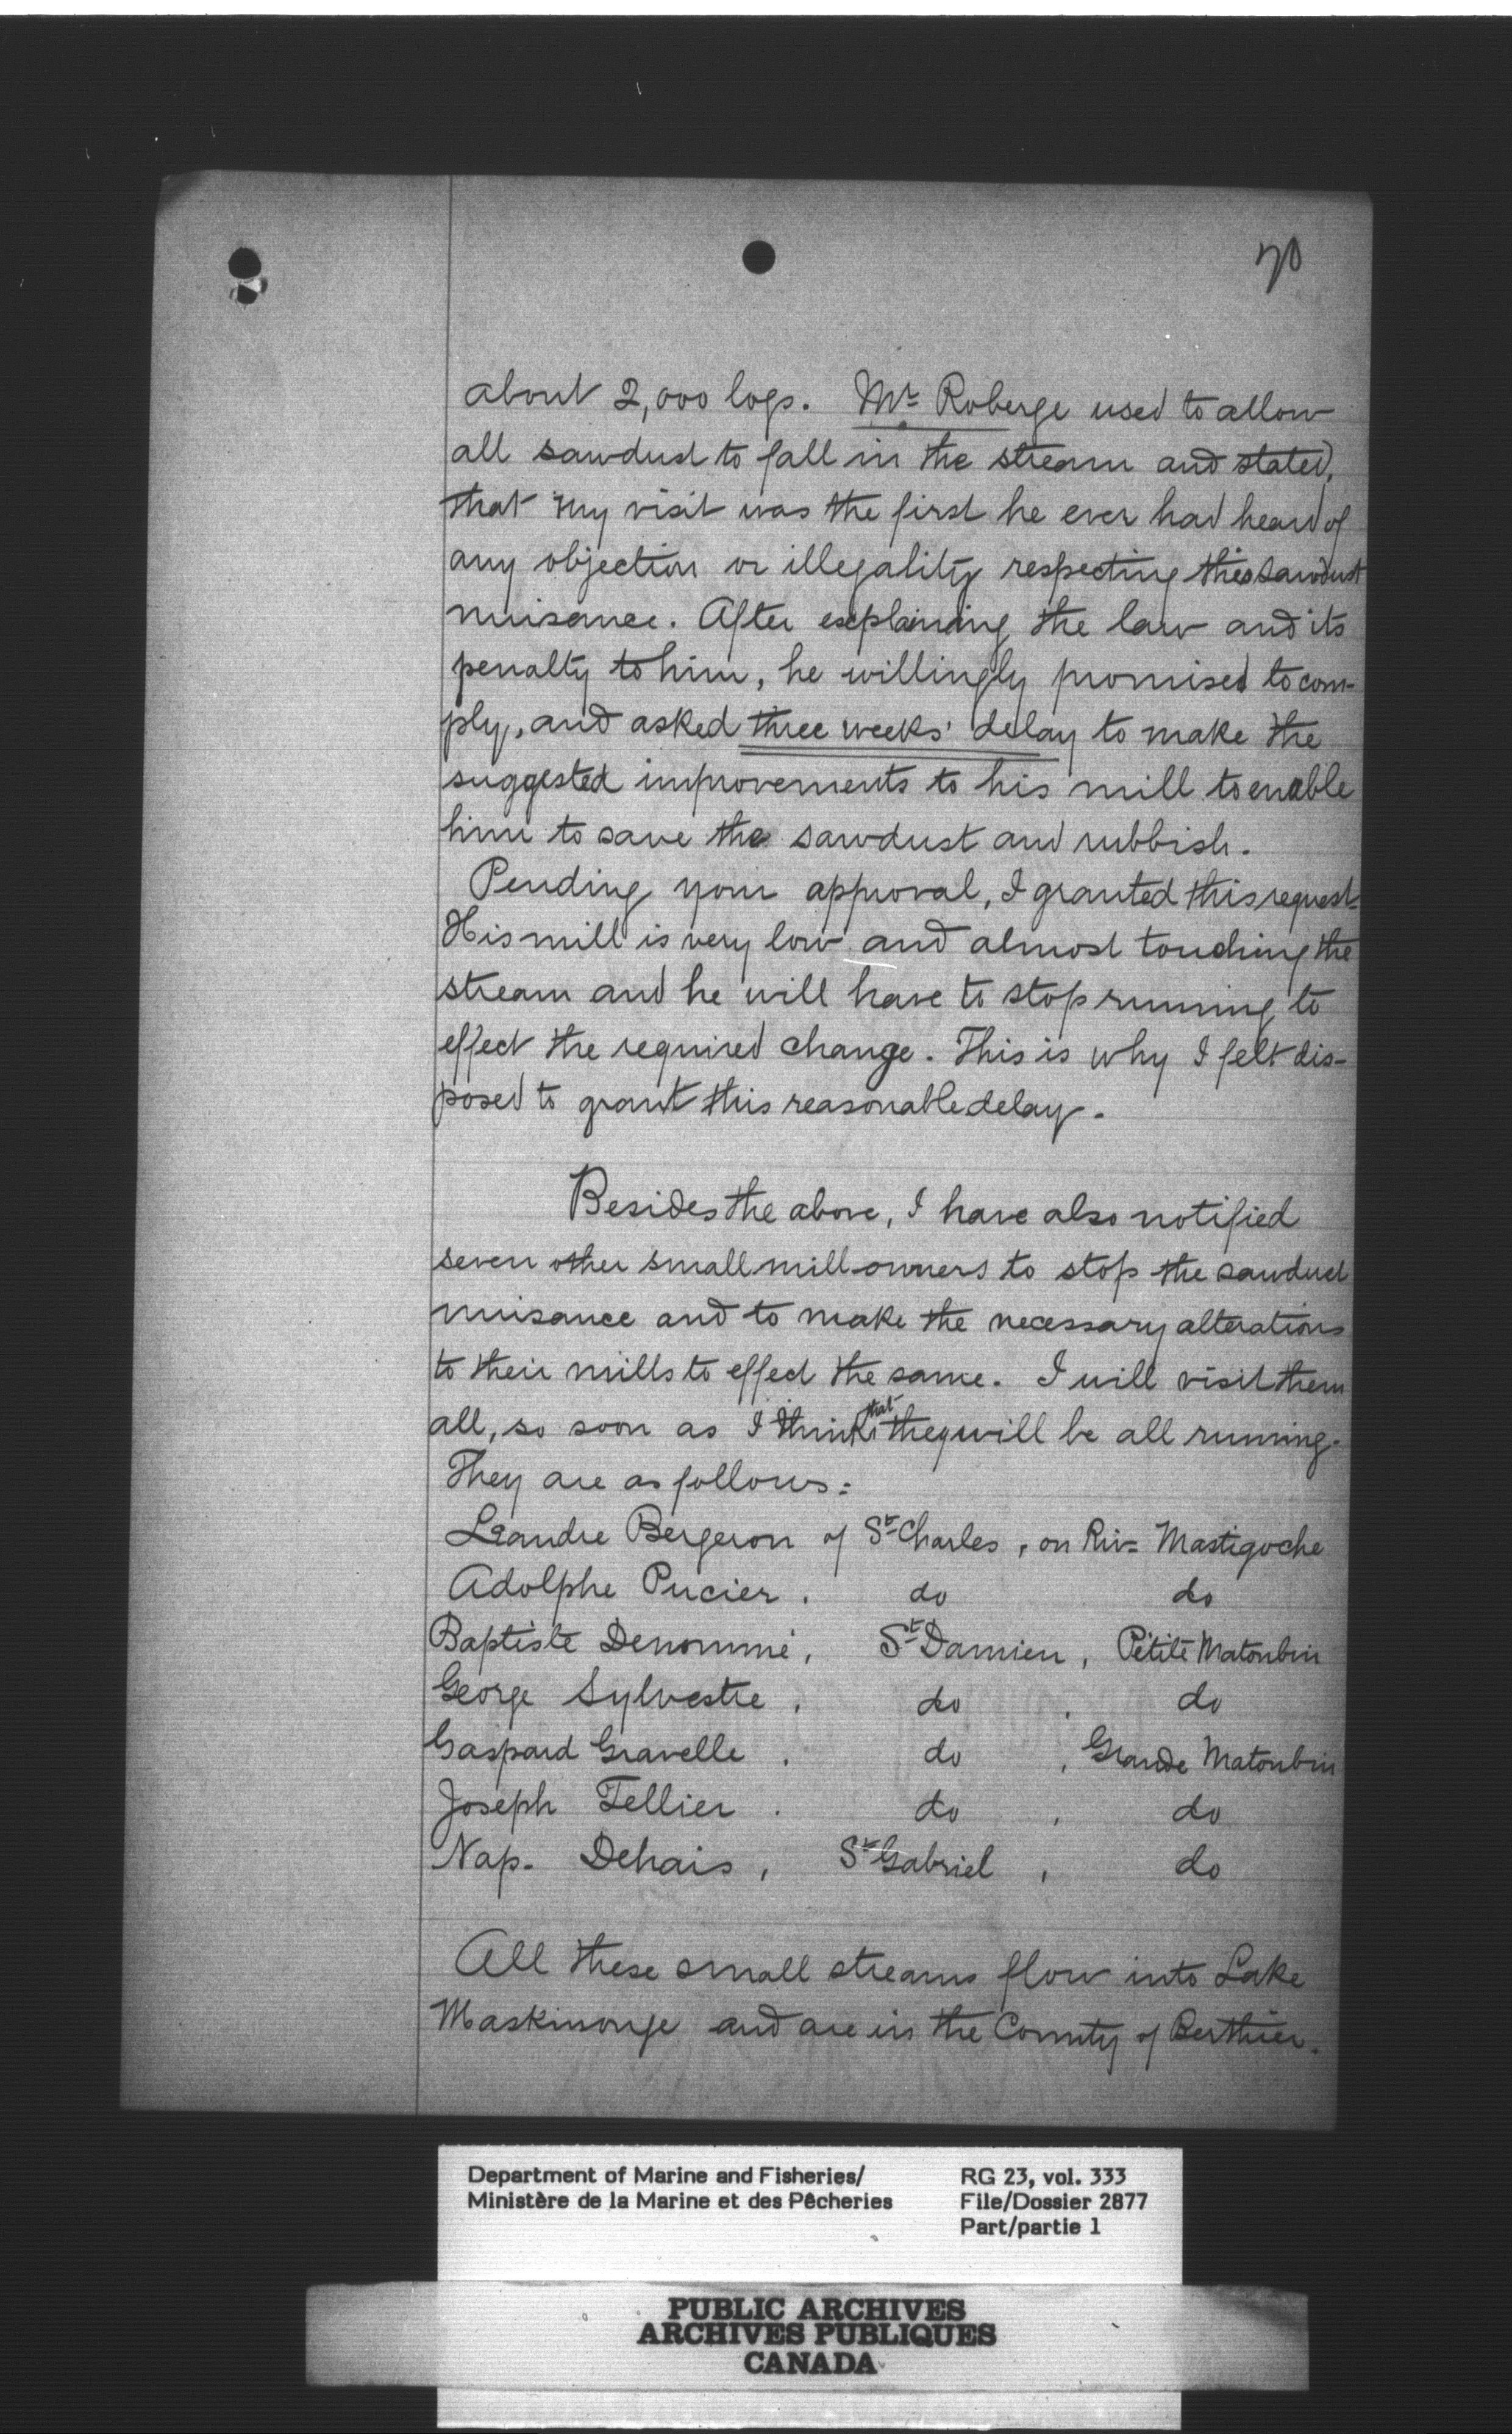 70
about 2,000 logs. Mr. Roberge used to allow
all sawdust to fall in the stream and stated,
that my visit was the first he ever had heard of
any objection or illegality respecting this sawdust
nuisance. After explaining the law and its
penalty to him, he willingly promised to com-
ply, and asked three weeks' delay to make the
suggested improvements to his mill to enable
him to save the sawdust and rubbish.
Pending your approval, I granted this request.
His mill is very low and almost touching the
stream and he will have to stop running to
effect the required change. This is why I felt dis-
posed to grant this reasonable delay.
Besides the above, I have also notified
seven other small mill-owners to stop the sawdust
nuisance and to make the necessary alterations
to their mills to effect the same. I will visit them
all, so soon as I think that they will be all running.
They are as follows:
Leandre Bergeron of St. Charles, on Riv= Mastigoche
Adolphe Pucier. do do
Baptiste Denommé, St Damien, Petite Matonbin
George Sylvestre. do , do
Gaspard Gravelle. do , Grande Matonbin
Joseph Tellier. do , do
Nap. Dehais, St Gabriel, do
All these small streams flow into Lake
Maskinonge and are in the County of Berthier.
Department of Marine and Fisheries/
Ministère de la Marine et des Pêcheries
RG 23, vol. 333
File/Dossier 2877
Part/partie 1
PUBLIC ARCHIVES
ARCHIVES PUBLIQUES
CANADA